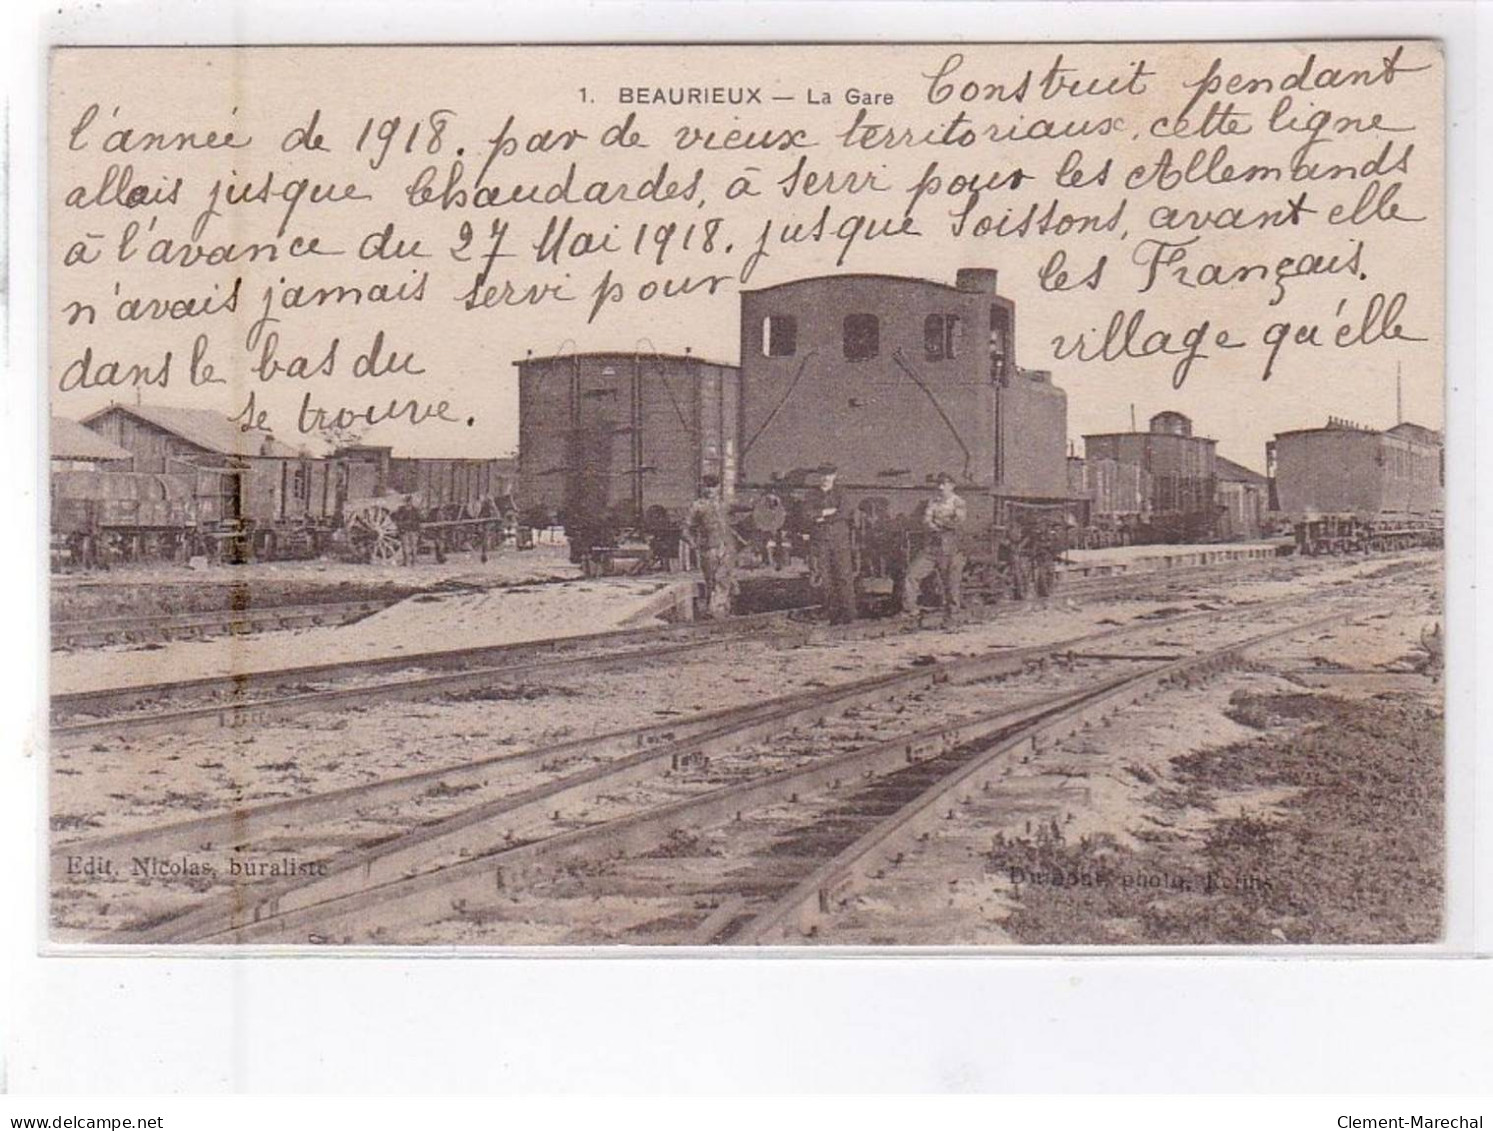 1. BEAURIEUX — La Gare Construit pendant
l'année de 1918. par de vieux territoriaux, cette ligne
allais jusque Chaudardes, à servi pour les Allemands
à l'avance du 27 Mai 1918. jusque Soissons, avant elle
n'avais jamais servi pour les Français.
dans le bas du village qu'elle
se trouve.
Edit. Nicolas, buraliste
Dumont, photo, Reims
www.delcampe.net
Clement-Marechal